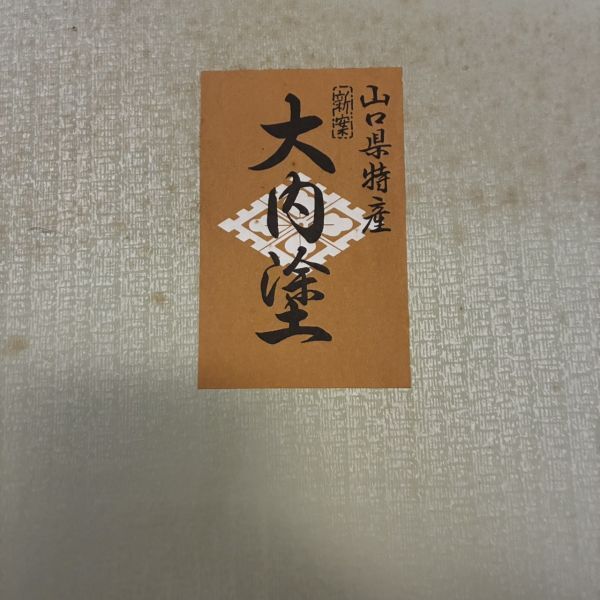 山口県特産
新案
大内塗